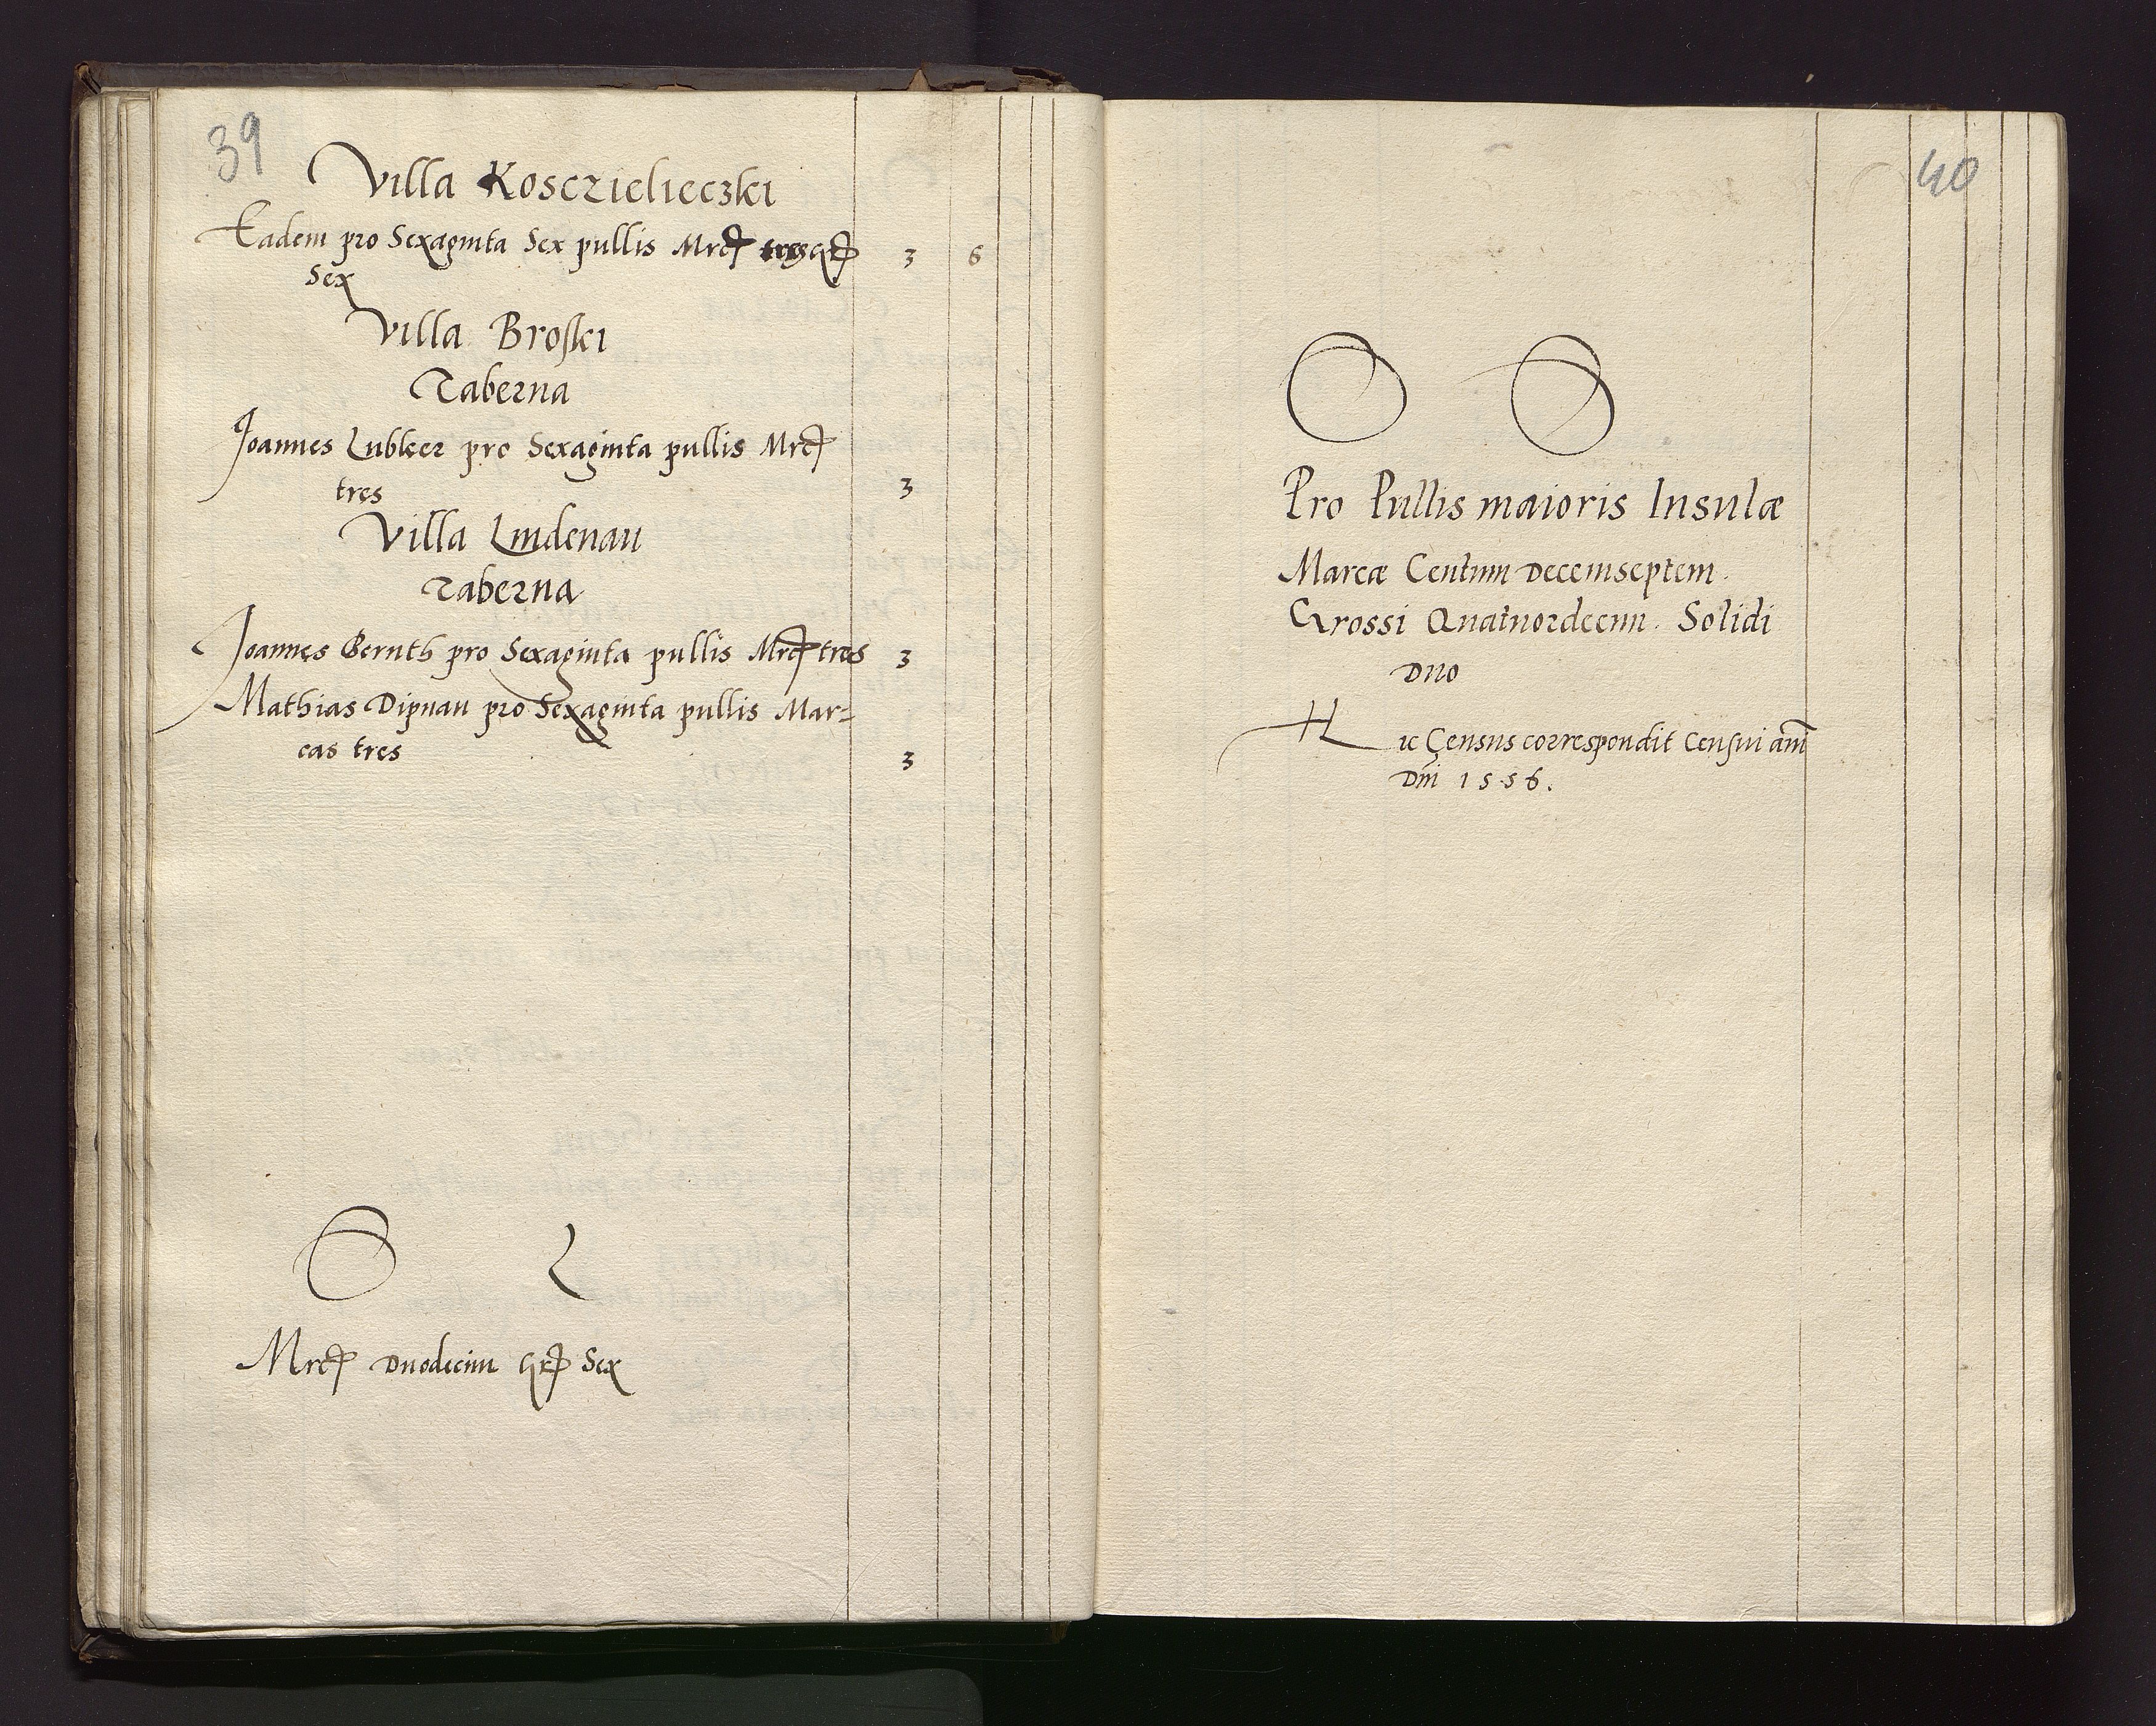 39
Villa Kosczielieczki
Eadem pro Sexaginta Sex pullis Mrcꝭ tres grꝭ 3 6
Sex
Villa Broski
Taberna
Joannes Lubker pro Sexaginta pullis Mrcꝭ
tres 3
Villa Lindenau
Taberna
Joannes Gernth pro Sexaginta pullis Mrcꝭ tres 3
Mathias Dipnau pro Sexaginta pullis Mar=
cas tres 3
Mrcꝭ Duodecim grꝭ Sex
40
Pro Pullis maioris Insulæ
Marcæ Centum Decemseptem.
Grossi Quatuordecim. Solidi
Duo
Hic Census correspondit Censui anni
Dni 1556.